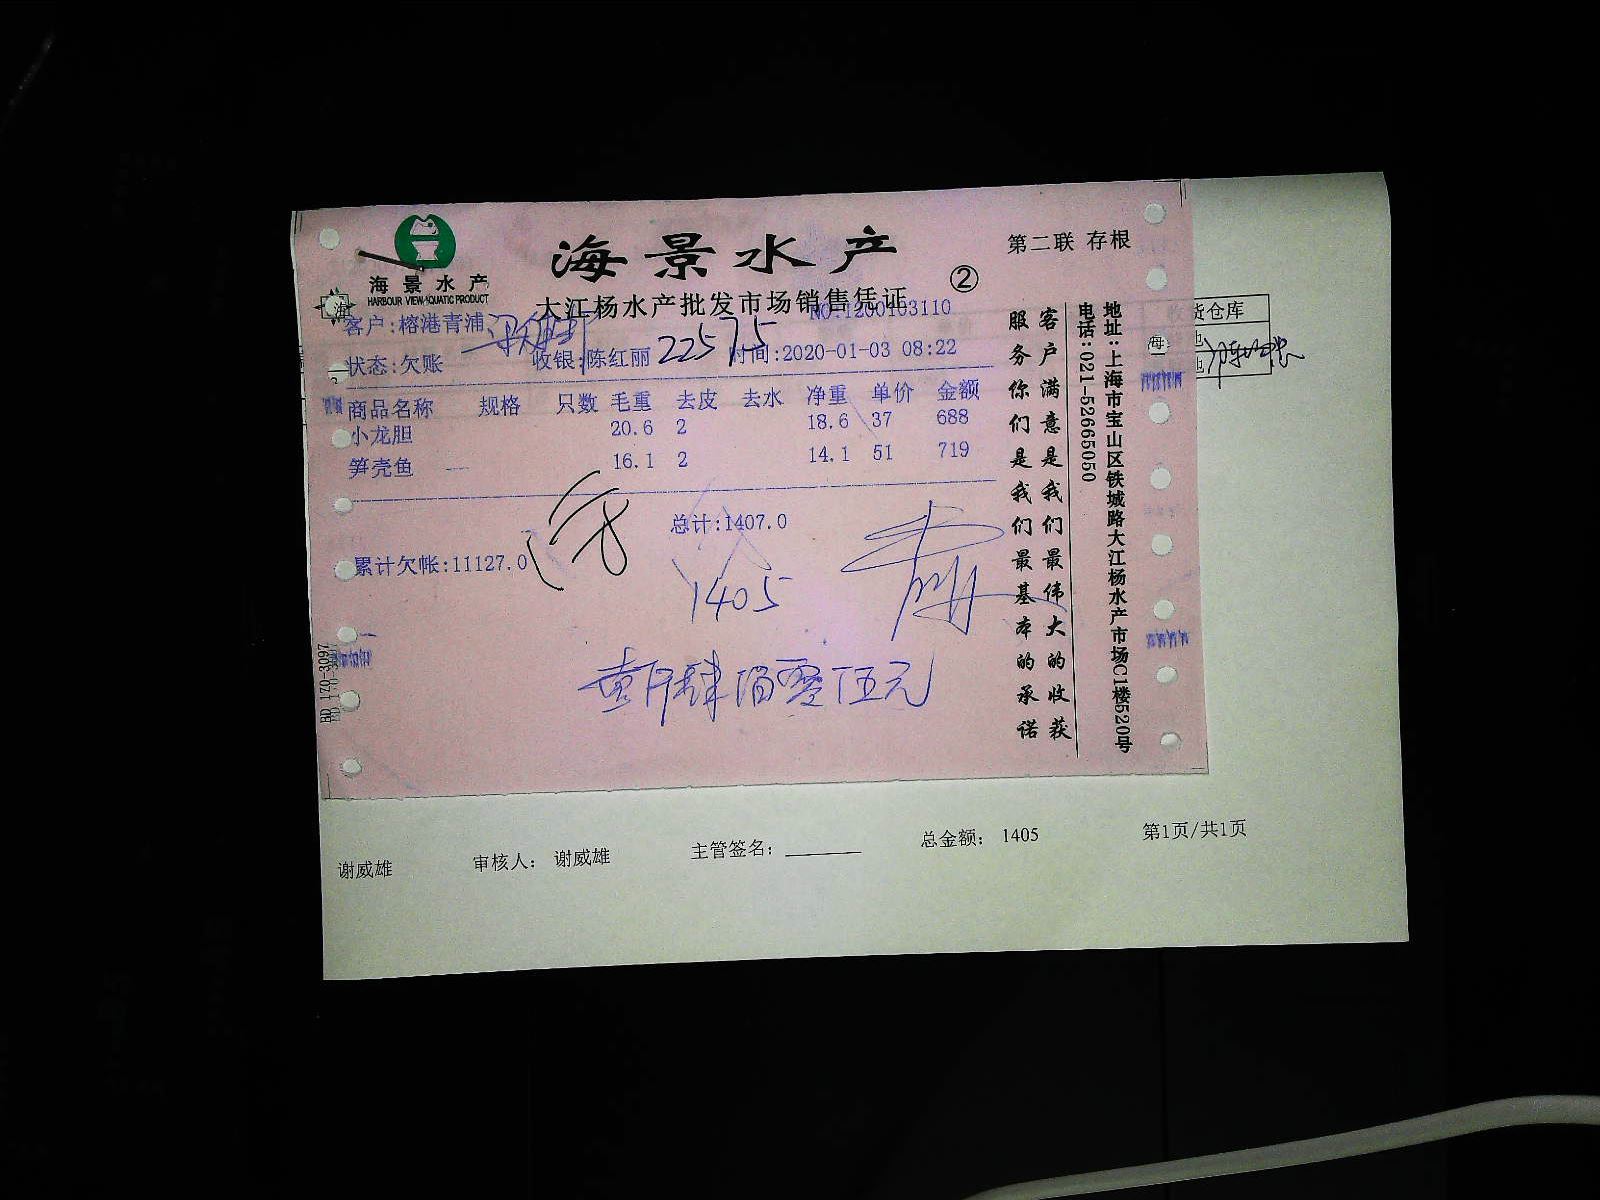 海景水产
HARBOUR VIEW AQUATIC PRODUCT
海景水产
第二联 存根
②
大江杨水产批发市场销售凭证
NO:1200103110
客户:榕港青浦
22575
状态:欠账 收银:陈红丽 时间:2020-01-03 08:22
商品名称 规格 只数 毛重 去皮 去水 净重 单价 金额
小龙胆 20.6 2 18.6 37 688
笋壳鱼 16.1 2 14.1 51 719
总计:1407.0
累计欠帐:11127.0
1405
壹仟肆佰零伍元
客户满意是我们最伟大的收获
服务你们是我们最基本的承诺
地址:上海市宝山区铁城路大江杨水产市场C1楼520号
电话:021-52665050
货仓库
谢威雄 审核人: 谢威雄 主管签名: 总金额: 1405 第1页/共1页